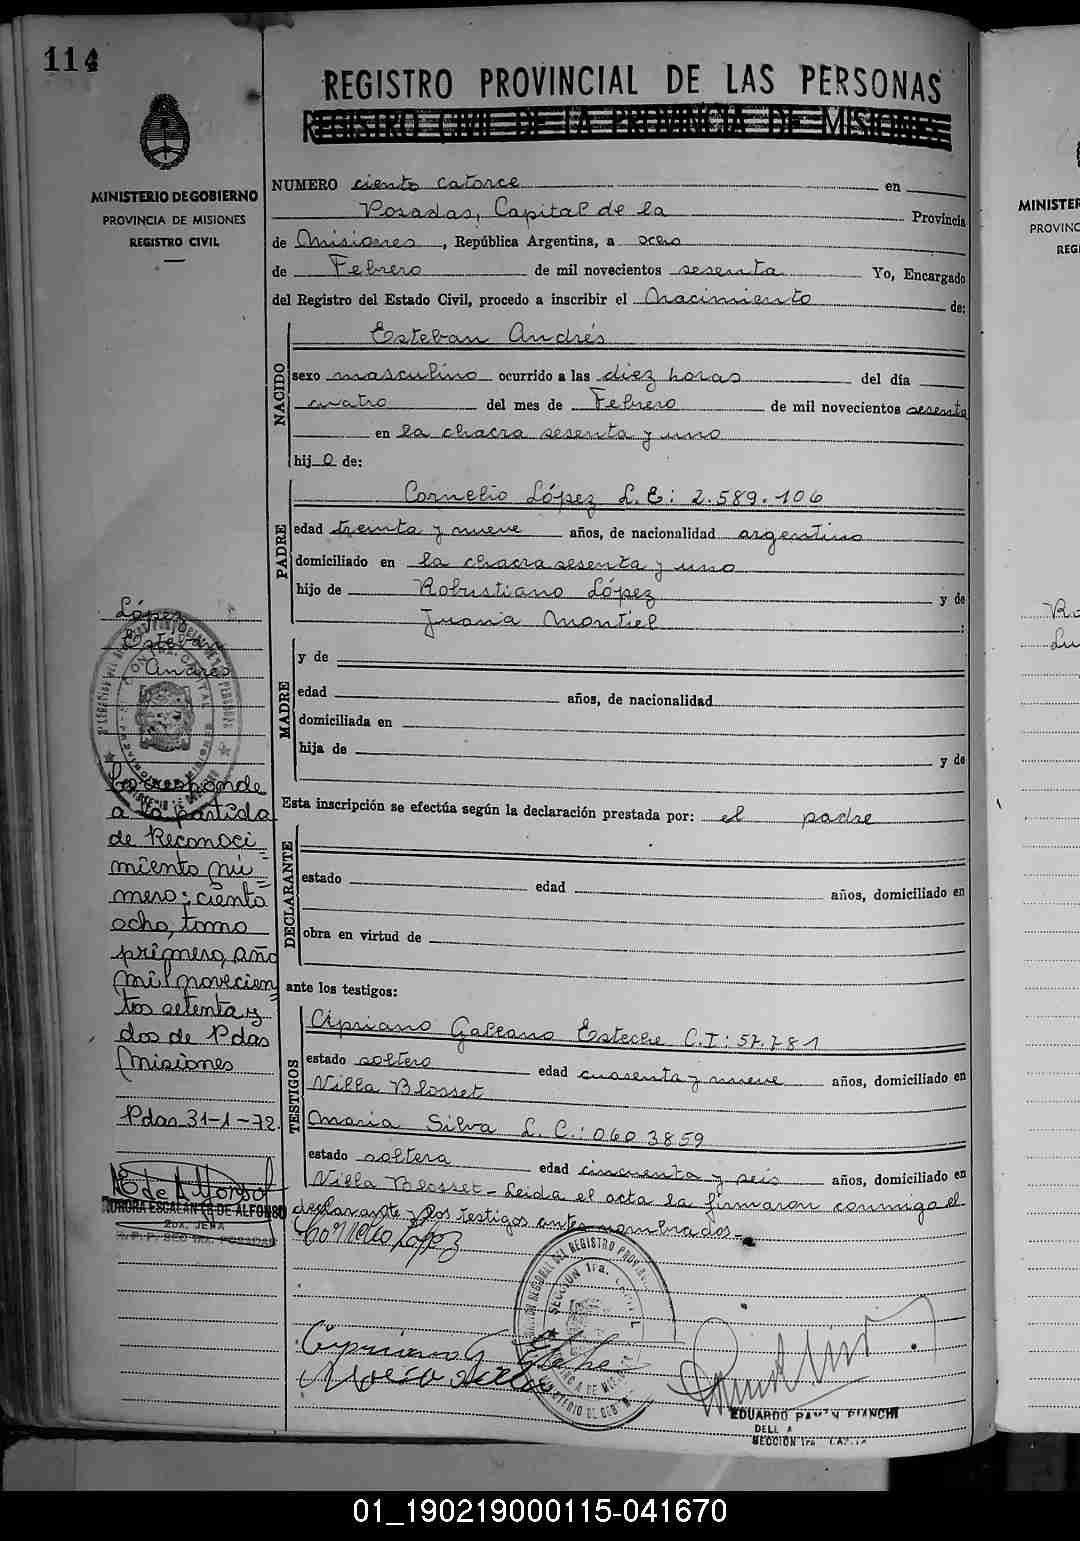 114
REGISTRO PROVINCIAL DE LAS PERSONAS
REGISTRO CIVIL DE LA PROVINCIA DE MISIONES
MINISTERIO DE GOBIERNO
PROVINCIA DE MISIONES
REGISTRO CIVIL
NUMERO ciento catorce en
Posadas, Capital de la Provincia
de Misiones, República Argentina, a ocho
de Febrero de mil novecientos sesenta Yo, Encargado
del Registro del Estado Civil, procedo a inscribir el Nacimiento de:
NACIDO
Esteban Andrés
sexo masculino ocurrido a las diez horas del día
cuatro del mes de Febrero de mil novecientos sesenta
en la chacra sesenta y uno
hijo de:
PADRE
Cornelio López L.E: 2.589.106
edad treinta y nueve años, de nacionalidad argentino
domiciliado en la chacra sesenta y uno
hijo de Robustiano López y de
Juana Montiel :
MADRE
y de
edad años, de nacionalidad
domiciliada en
hija de y de
Esta inscripción se efectúa según la declaración prestada por: el padre
DECLARANTE
estado edad años, domiciliado en
obra en virtud de
ante los testigos:
TESTIGOS
Cipriano Galeano Esteche C.I: 57.781
estado soltero edad cuarenta y nueve años, domiciliado en
Villa Blosset
Maria Silva L.C.: 0603859
estado soltera edad cincuenta y seis años, domiciliado en
Villa Blosset - Leida el acta la firmaron conmigo el
declarante y los testigos antes nombrados.-
Cornelio López
Cipriano G Esteche
EDUARDO RAMÓN BIANCHI
SECCION 1ra
López
Esteban
Andrés
Corresponde
a la partida
de Reconoci
miento nú
mero: ciento
ocho, tomo
primero, año
mil novecien
tos setenta y
dos de Pdas
Misiones
Pdas 31-1-72
AURORA ESCALANTE DE ALFONSO
2da. JEFA
MINISTER
PROVINC
REG
01_190219000115-041670